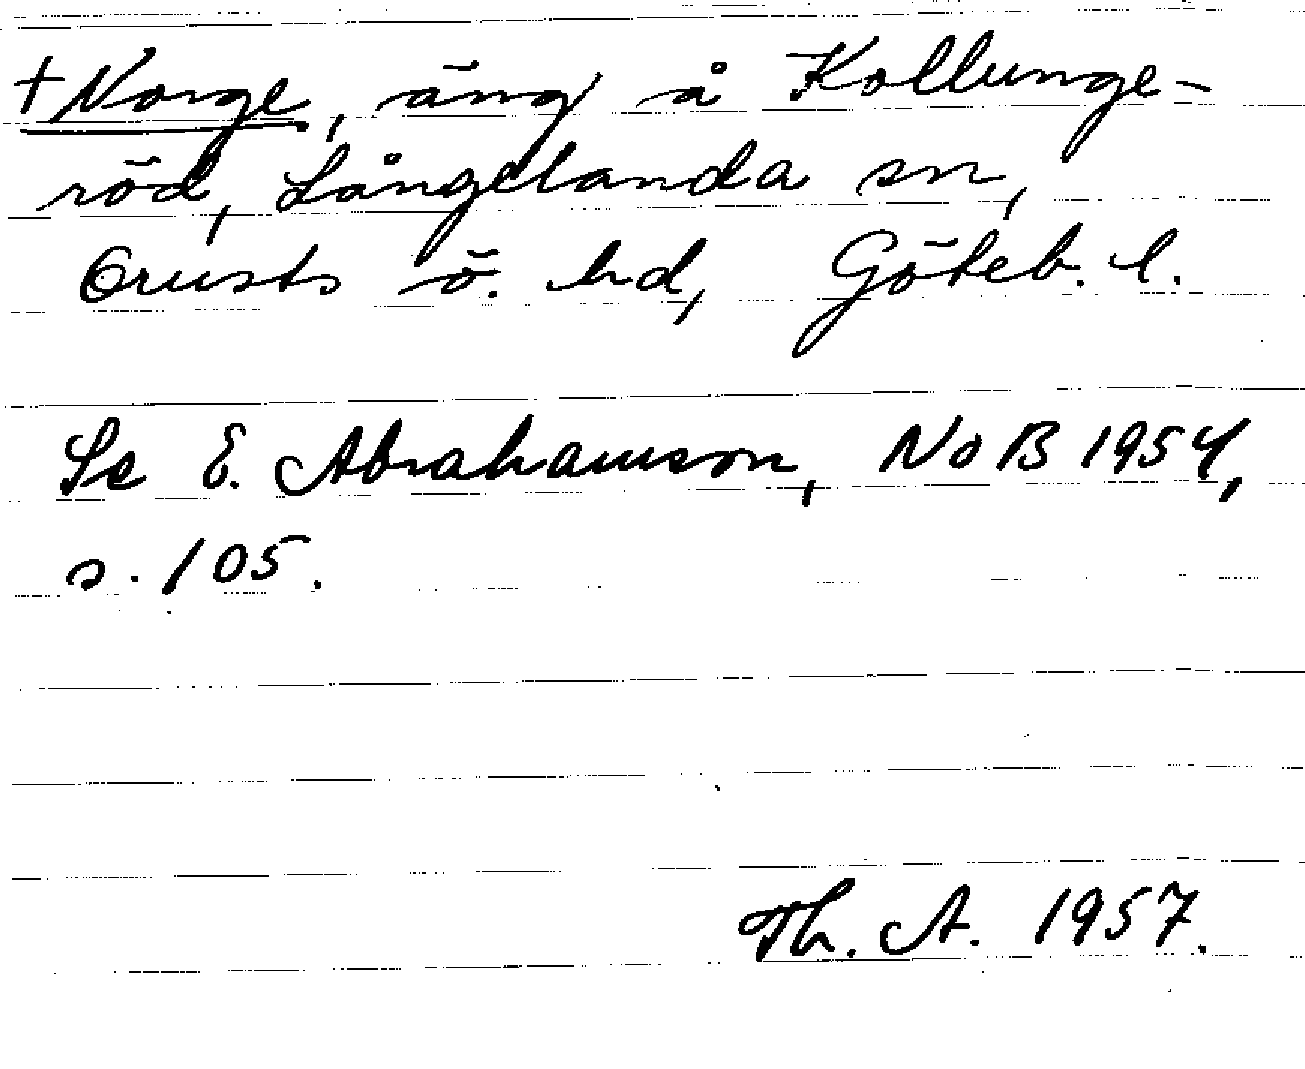 +Norge, äng å Kollunge-
röd, Långelanda sn,
Orusts ö. hd, Göteb. l.
Se E. Abrahamson, NoB 1954,
s. 105.
Th. A. 1957.